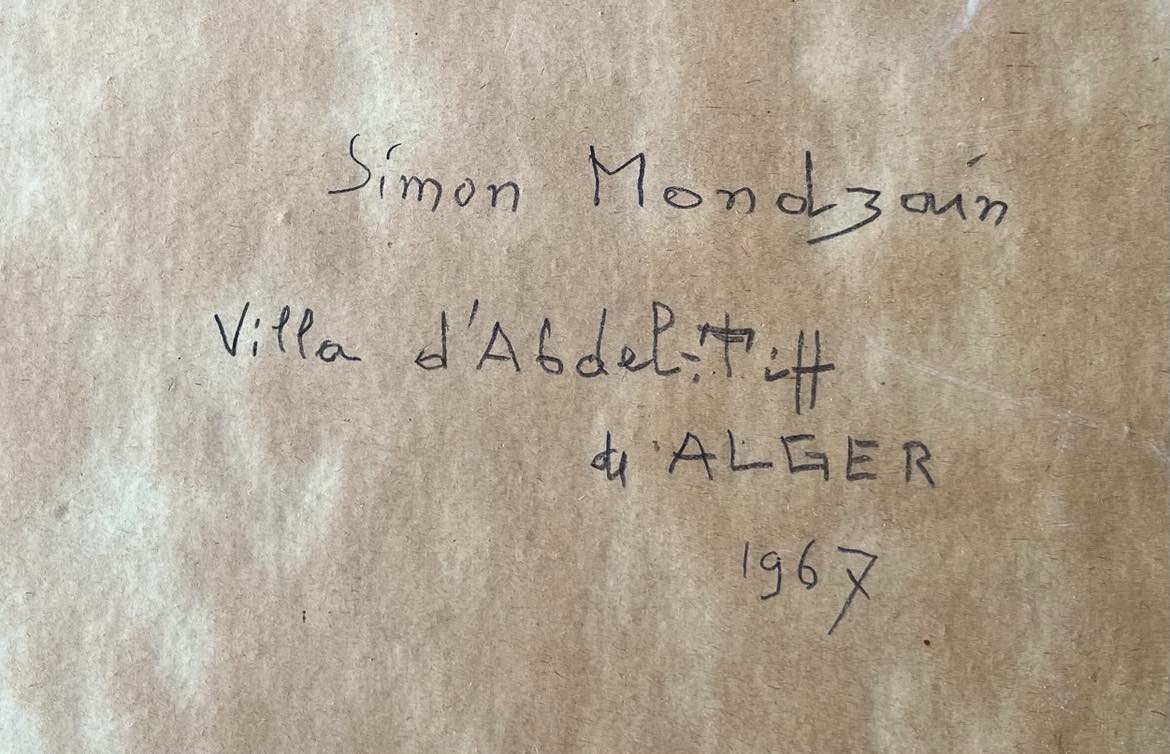 Simon Mondzain
Villa d'Abdel-Tiff
d'ALGER
1967